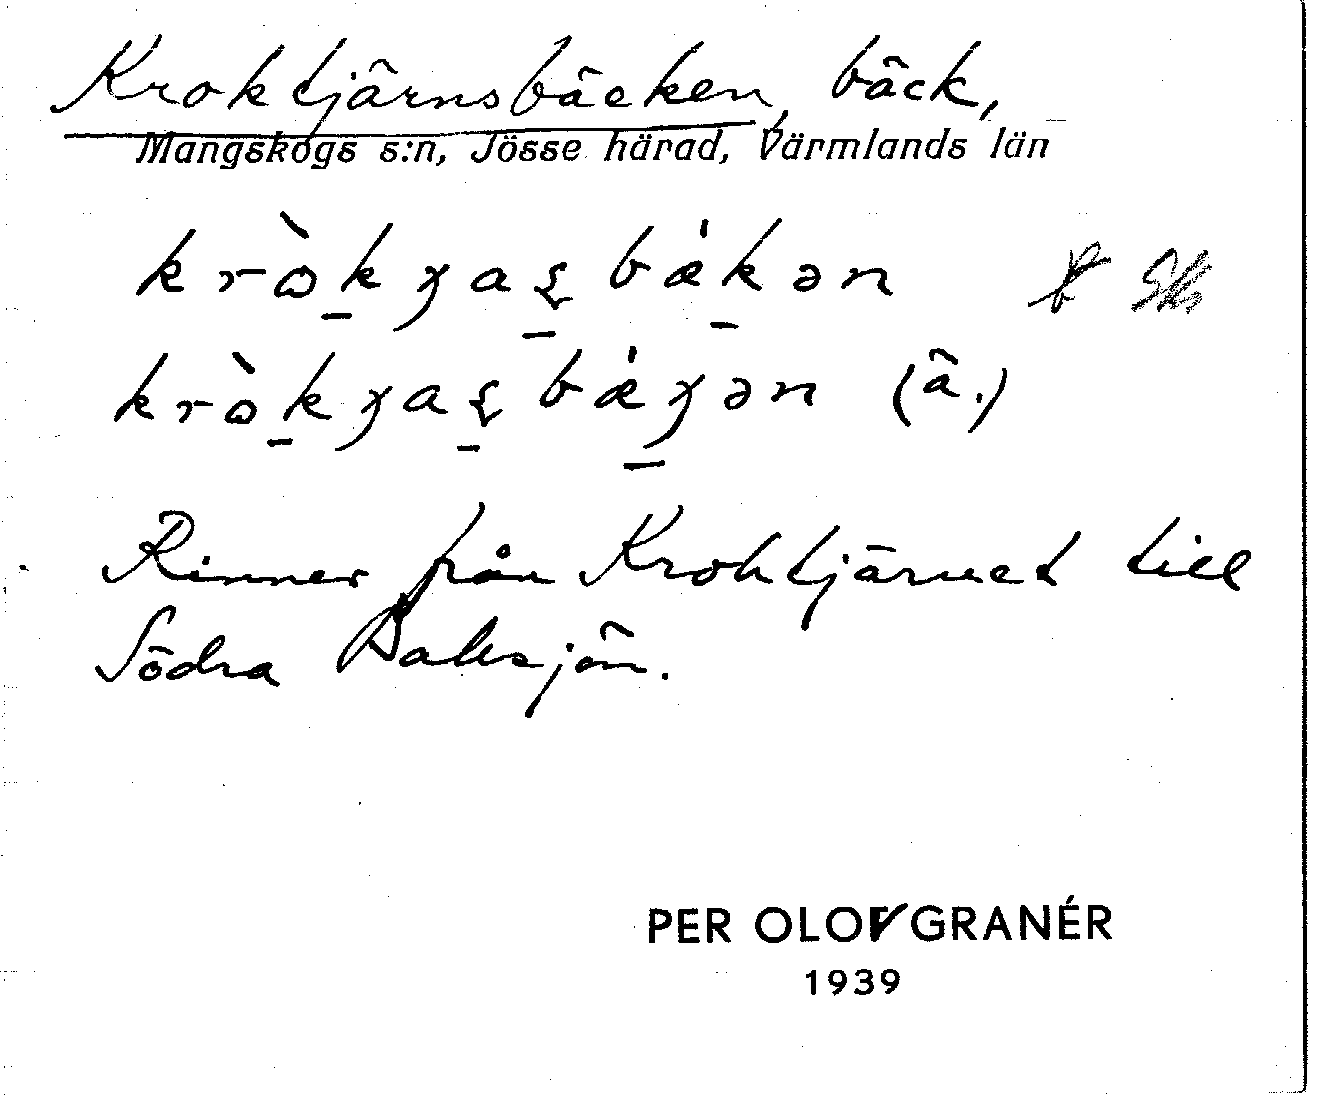 Kroktjärnsbäcken, bäck,
Mangskogs s:n, Jösse härad, Värmlands län
kròkɟaʂbækən
kròkɟaʂbæɟən (ä.)
Rinner från Kroktjärnet till
Södra Daksjön.
PER OLOV GRANÉR
1939